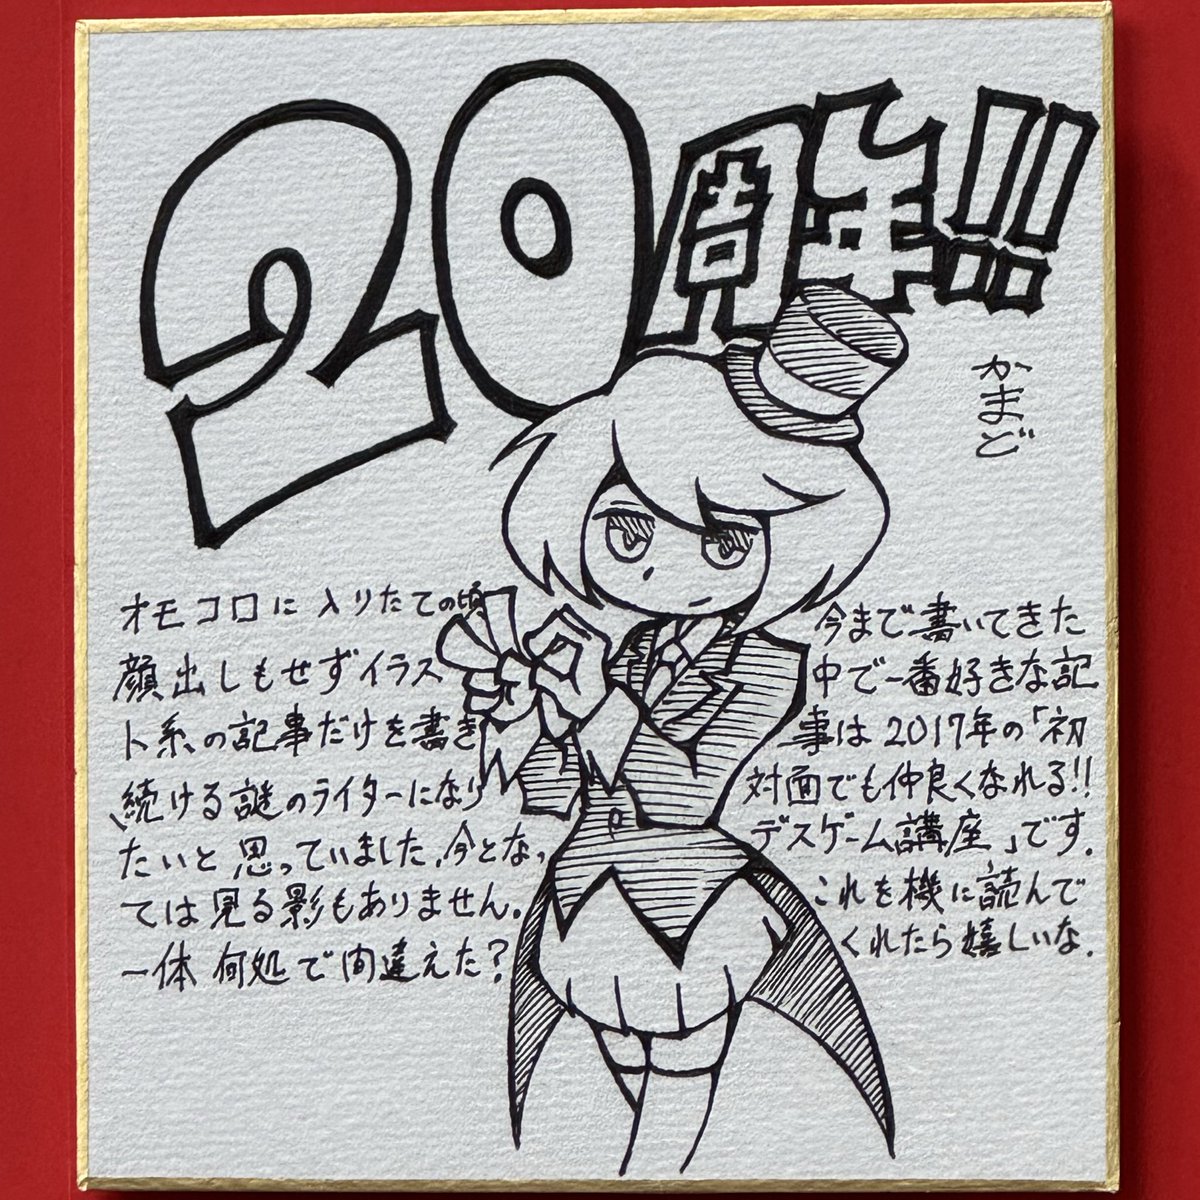 20周年!!
かまど
オモコロに入りたての頃
顔出しもせずイラス
ト系の記事だけを書き
続ける謎のライターになり
たいと思っていました。今となっ
ては見る影もありません。
一体何処で間違えた?
今まで書いてきた
中で一番好きな記
事は2017年の「初
対面でも仲良くなれる!!
デスゲーム講座」です。
これを機に読んで
くれたら嬉しいな。